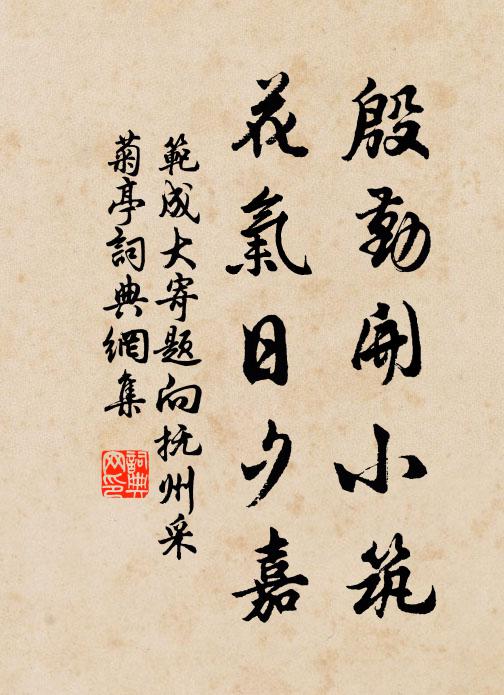 殷勤開小筑
花氣日夕嘉
範成大寄題向抚州采
菊亭詞典網集
詞典网印